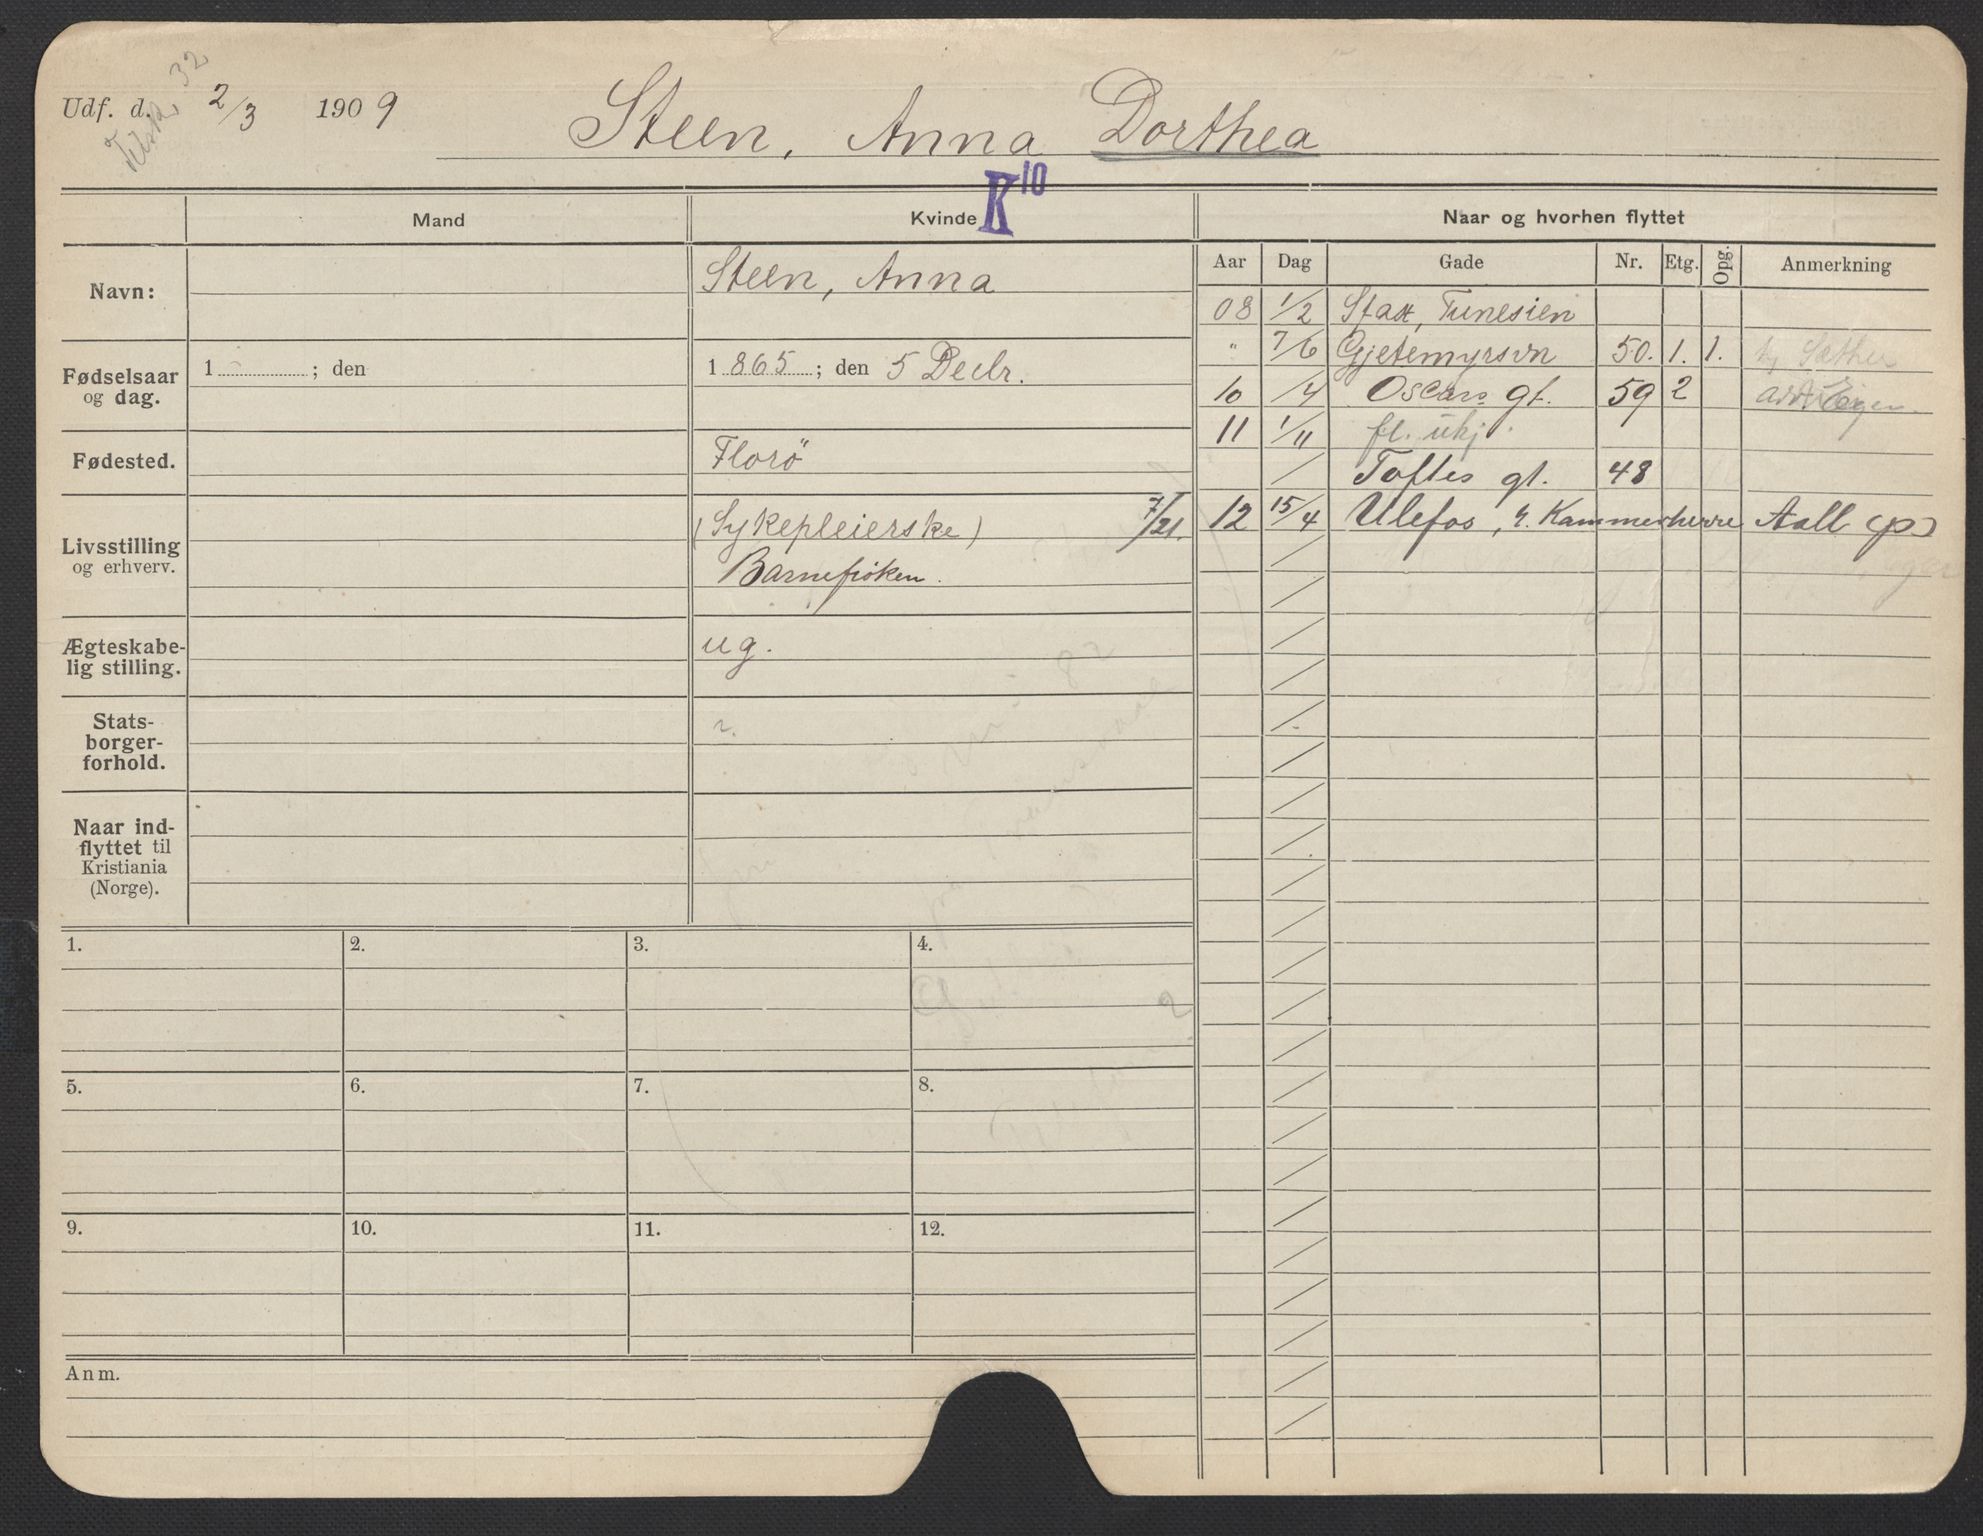 Udf. d. 2/3 1909
32
Steen, Anna Dorthea
K 10
Mand
Kvinde
Naar og hvorhen flyttet
Navn:
Steen, Anna
Aar Dag Gade Nr. Etg. Opg. Anmerkning
08 1/2 Sfax, Tunesien
" 7/6 Gjetemyrsvn 50. 1. 1.
Fødselsaar
og dag.
1 ; den
1865; den 5 Decbr.
10 /4 Oscars gt. 59 2
11 1/11 fl. ukj.
Fødested.
Florö
Toftes gt. 48
Livsstilling
og erhverv.
(Sykepleierske) 7/21.
Barnefrøken.
12 15/4 Ulefos, h. Kammerherre Aall (p)
Ægteskabe-
lig stilling.
ug.
Stats-
borger-
forhold.
n.
Naar ind-
flyttet til
Kristiania
(Norge).
1. 2. 3. 4.
5. 6. 7. 8.
9. 10. 11. 12.
Anm.